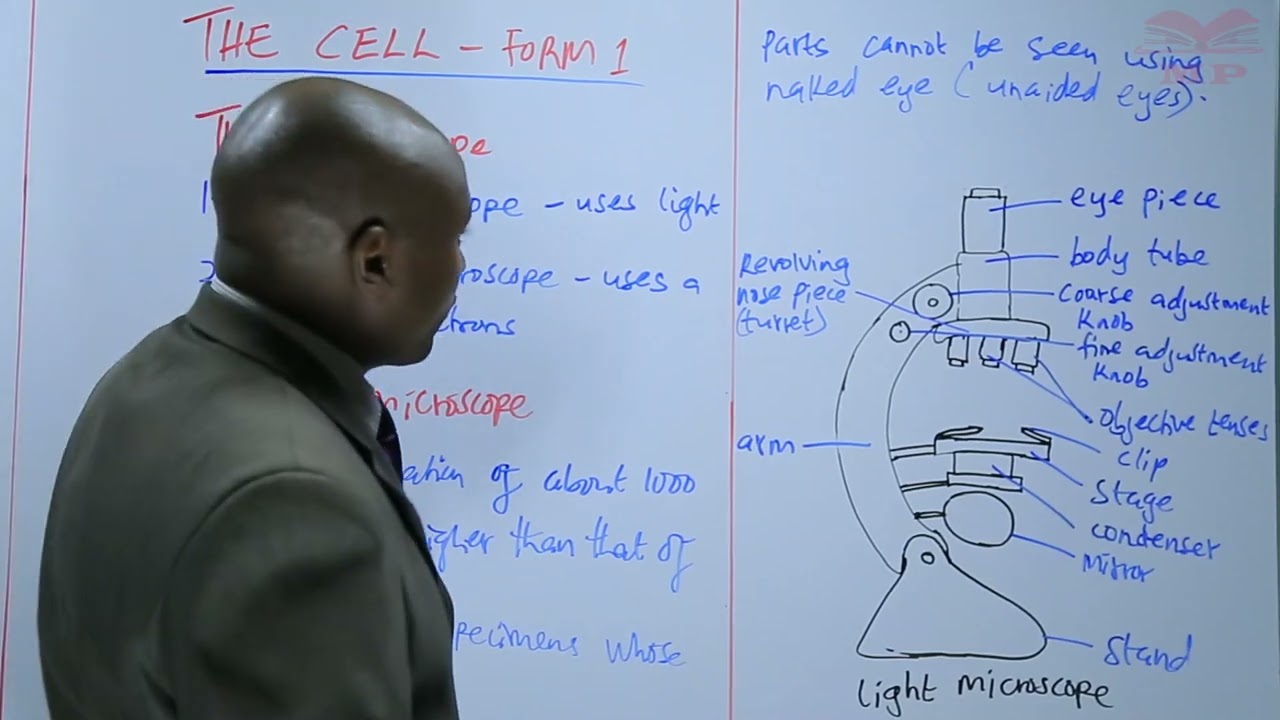 THE CELL - FORM 1
pe
ope - uses light
roscope - uses a
trons
microscope
ation of about 1000
igher than that of
pecimens whose
parts cannot be seen using
naked eye (unaided eyes).
MP
eye piece
body tube
Revolving
nose piece
(turret)
coarse adjustment
knob
fine adjustment
knob
objective lenses
arm
clip
stage
condenser
mirror
stand
light microscope